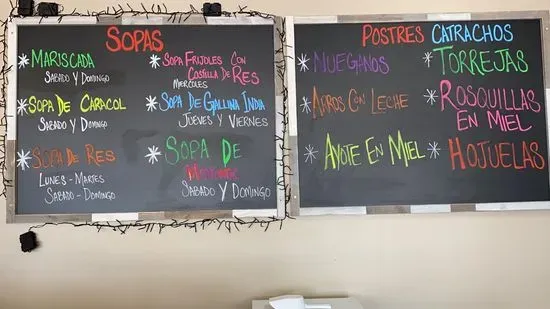 SOPAS
* MARISCADA
SABADO Y DOMINGO
* SOPA DE CARACOL
SABADO Y DOMINGO
* SOPA DE RES
LUNES - MARTES
SABADO - DOMINGO
* SOPA FRIJOLES CON
COSTILLA DE RES
MIERCOLES
* SOPA DE GALLINA INDIA
JUEVES Y VIERNES
* SOPA DE
SABADO Y DOMINGO
POSTRES CATRACHOS
* MUEGANOS
* ARROS CON LECHE
* AYOTE EN MIEL
* TORREJAS
* ROSQUILLAS
EN MIEL
* HOJUELAS